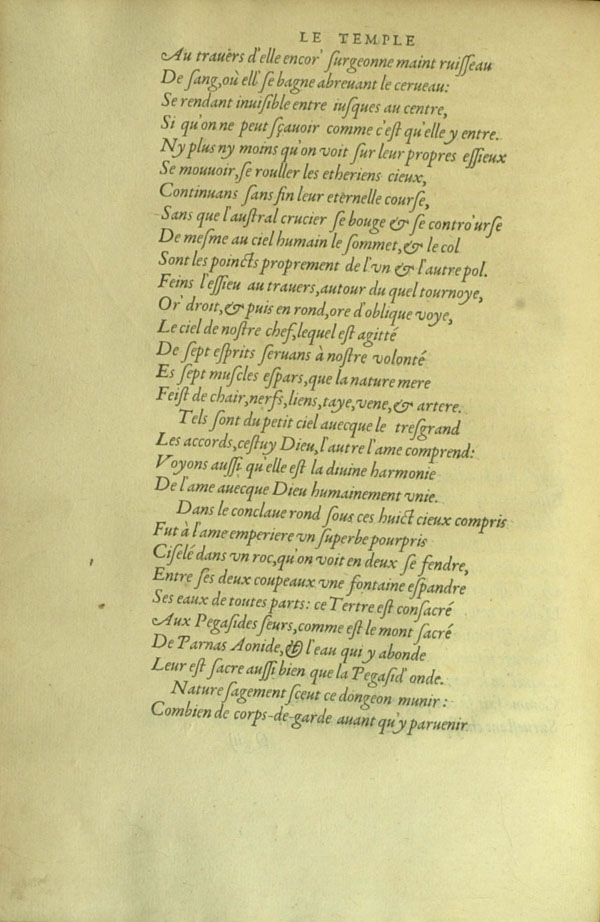 LE TEMPLE
Au trauèrs d'elle encor' ſurgeonne maint ruiſſeau
De ſang, où ell' ſe bagne abreuant le cerueau:
Se rendant inuiſible entre iuſques au centre,
Si qu'on ne peut ſçauoir comme c'eſt qu'elle y entre.
Ny plus ny moins qu'on voit ſur leur propres eſſieux
Se mouuoir, ſe rouller les etheriens cieux,
Continuans ſans fin leur etèrnelle courſe,
Sans que l'auſtral crucier ſe bouge & ſe contro'urſe
De meſme au ciel humain le ſommet, & le col
Sont les poincts proprement de l'vn & l'autre pol.
Feins l'eſſieu au trauers, autour du quel tournoye,
Or' droit, & puis en rond, ore d'oblique voye,
Le ciel de noſtre chef, lequel eſt agitté
De ſept eſprits ſeruans à noſtre volonté
Es ſept muſcles eſpars, que la nature mere
Feiſt de chair, nerfs, liens, taye, vene, & artere.
Tels ſont du petit ciel auecque le treſgrand
Les accords, ceſtuy Dieu, l'autre l'ame comprend:
Voyons auſſi qu'elle eſt la diuine harmonie
De l'ame auecque Dieu humainement vnie.
Dans le conclaue rond ſous ces huict cieux compris
Fut à l'ame emperiere vn ſuperbe pourpris
Ciſelé dans vn roc, qu'on voit en deux ſe fendre,
Entre ſes deux coupeaux vne fontaine eſpandre
Ses eaux de toutes parts: ce Tertre eſt conſacré
Aux Pegaſides ſeurs, comme eſt le mont ſacré
De Parnas Aonide, & l'eau qui y abonde
Leur eſt ſacre auſſi bien que la Pegaſid' onde.
Nature ſagement ſceut ce dongeon munir:
Combien de corps-de-garde auant qu'y paruenir